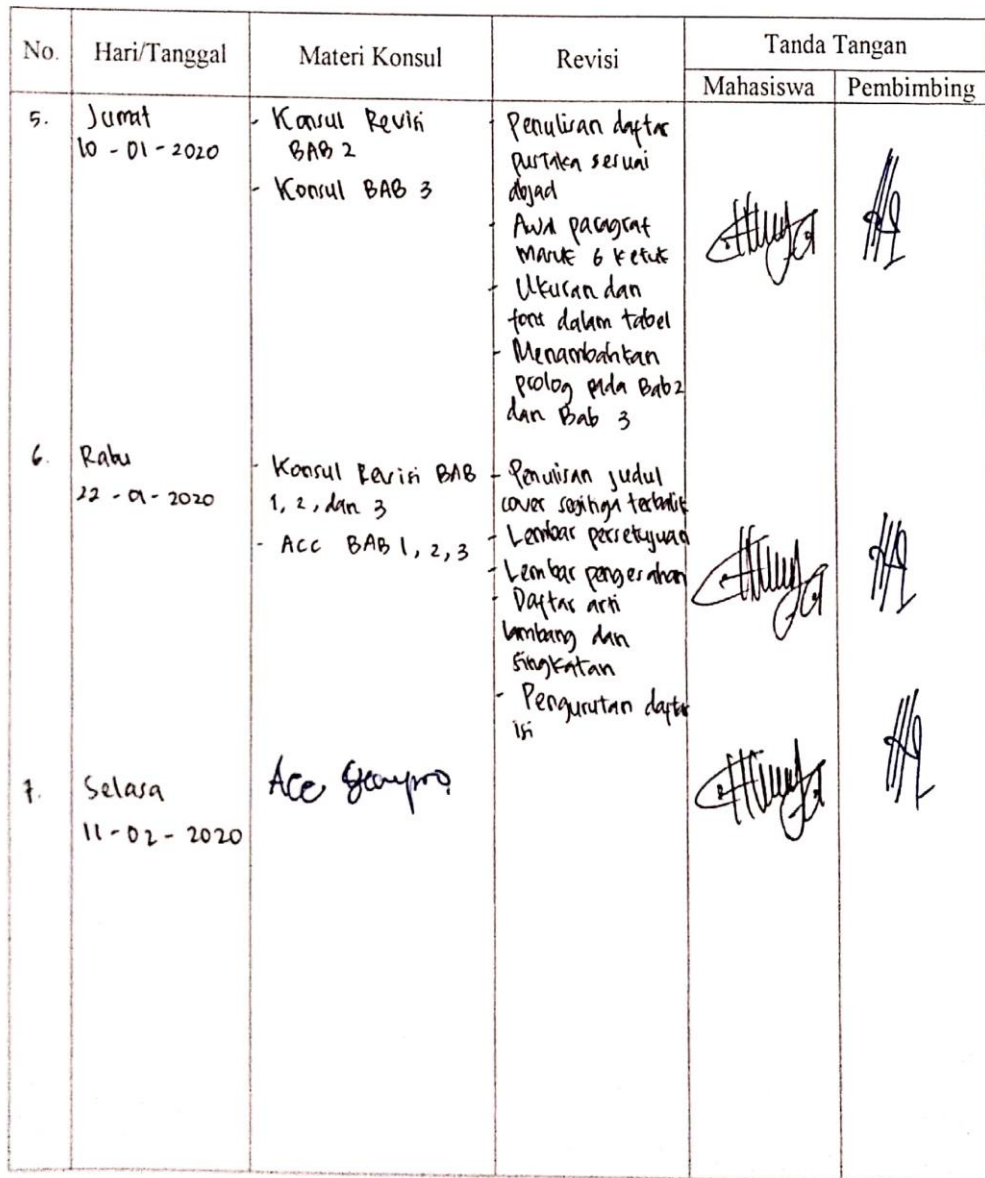 No. Hari/Tanggal Materi Konsul Revisi Tanda Tangan
Mahasiswa Pembimbing
5. Jumat
10 - 01 - 2020
- Konsul Revisi
BAB 2
- Konsul BAB 3
- Penulisan daftar
pustaka sesuai
abjad
- Awal paragraf
masuk 6 ketuk
- Ukuran dan
font dalam tabel
- Menambahkan
prolog pada Bab 2
dan Bab 3
6. Rabu
22 - 01 - 2020
- Konsul Revisi BAB
1, 2, dan 3
- ACC BAB 1, 2, 3
- Penulisan judul
cover segitiga terbalik
- Lembar persetujuan
- Lembar pengesahan
- Daftar arti
lambang dan
singkatan
- Pengurutan daftar
isi
7. Selasa
11 - 02 - 2020
Acc